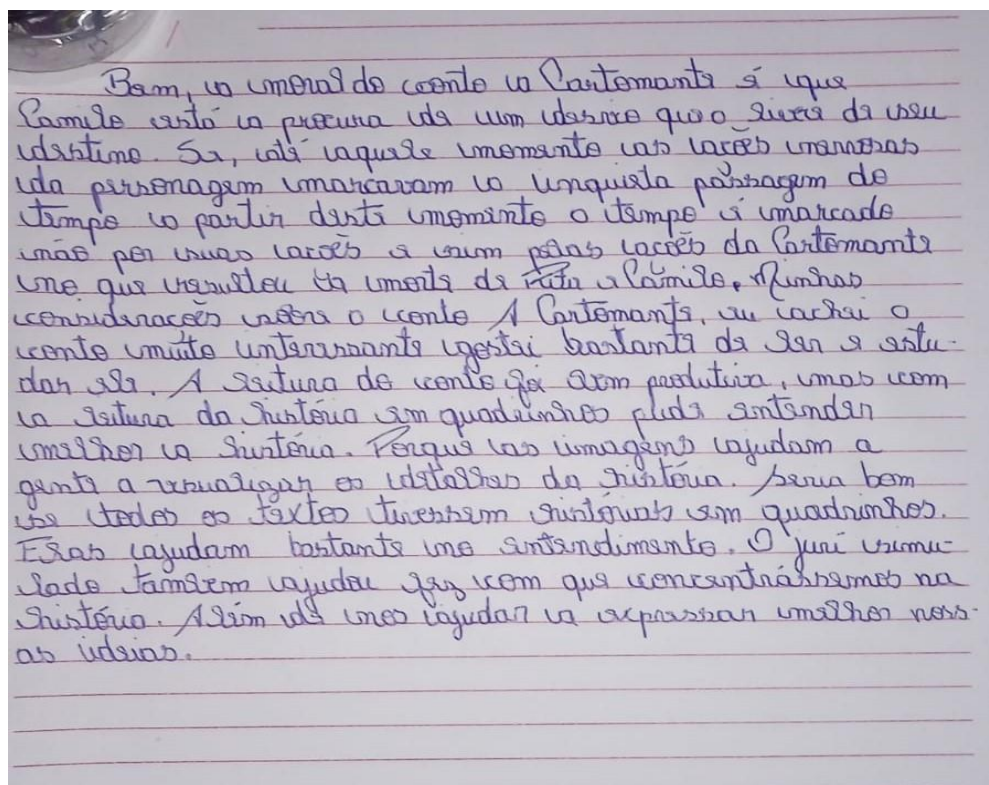 Bem, a moral do conto a Cartomante é que
Camilo está a procura de um desvio que o livra de seu
destino. Se, até aquele momento as ações
da personagem marcavam a inquieta passagem do
tempo a partir deste momento o tempo é marcado
não por suas ações e sim pelas ações da Cartomante
no que resultou na morte de Rita e Camilo. Minhas
considerações sobre o conto A Cartomante, eu achei o
conto muito interessante gostei bastante de ler e estu-
dar ele. A leitura do conto foi bem produtiva, mas com
a leitura da história em quadrinhos pude entender
melhor a história. Porque as imagens ajudam a
gente a visualizar os detalhes da história. Seria bem
se todos os textos tivessem histórias em quadrinhos.
Elas ajudam bastante no entendimento. O juri simu-
lado também ajudou fez com que concentrássemos na
história. Além de nos ajudar a expressar melhor noss-
as ideias.